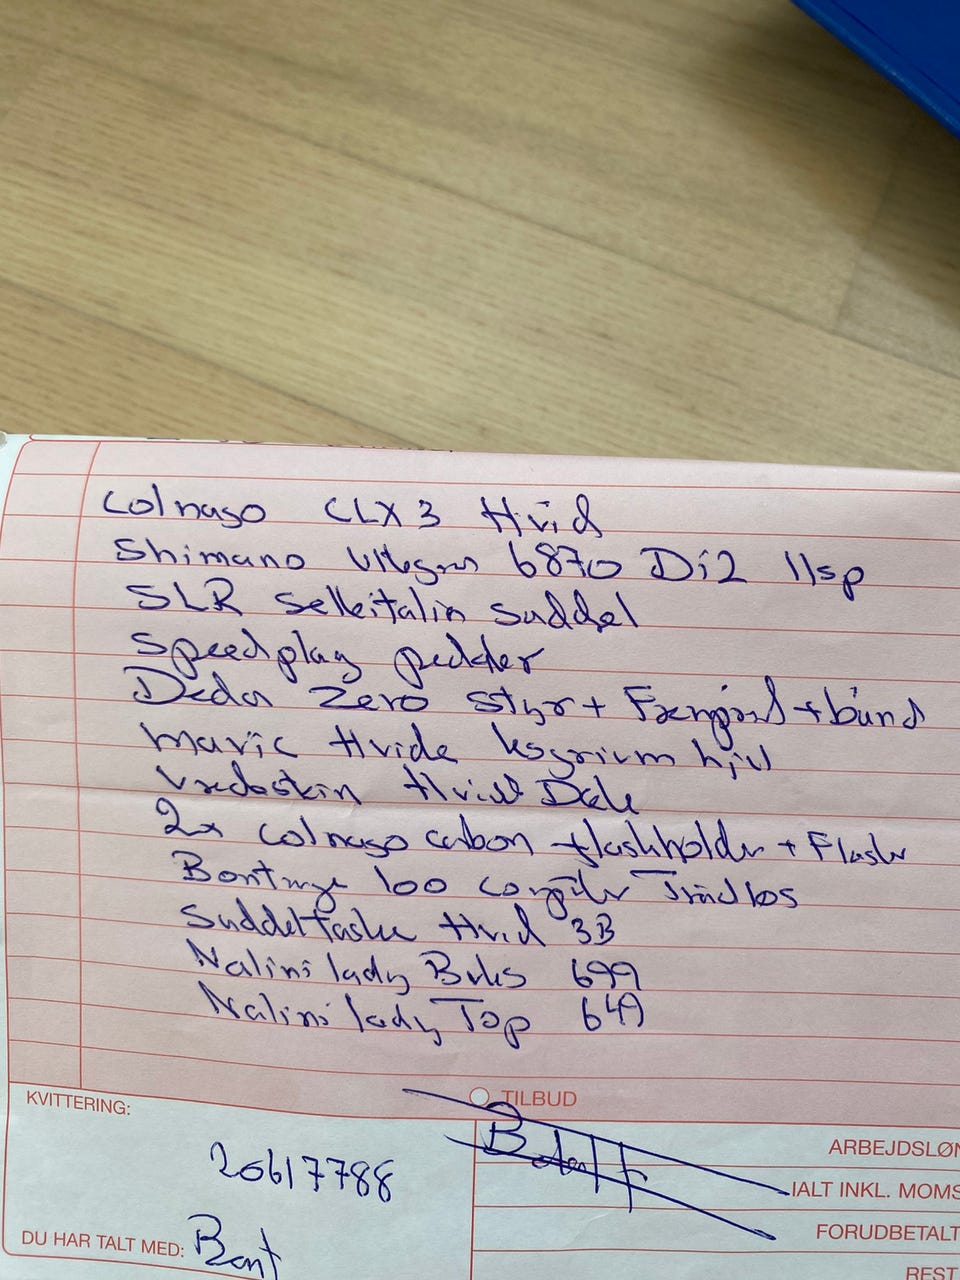 Colnago CLX3 Hvid
Shimano Ultegra 6870 Di2 11sp
SLR Selleitalia Saddel
Speedplay pedaler
Deda Zero styr + Frempind + bånd
Mavic Hvide ksyrium hjul
Vredestein Hvide Dæk
2x Colnago carbon flaskholder + Flasker
Bontrage 100 computer Trådløs
Saddeltaske Hvid 3B
Nalini lady Buks 699
Nalini lady Top 649
KVITTERING:
TILBUD
20617788
Betalt
ARBEJDSLØN
IALT INKL. MOMS
FORUDBETALT
DU HAR TALT MED: Bent
REST